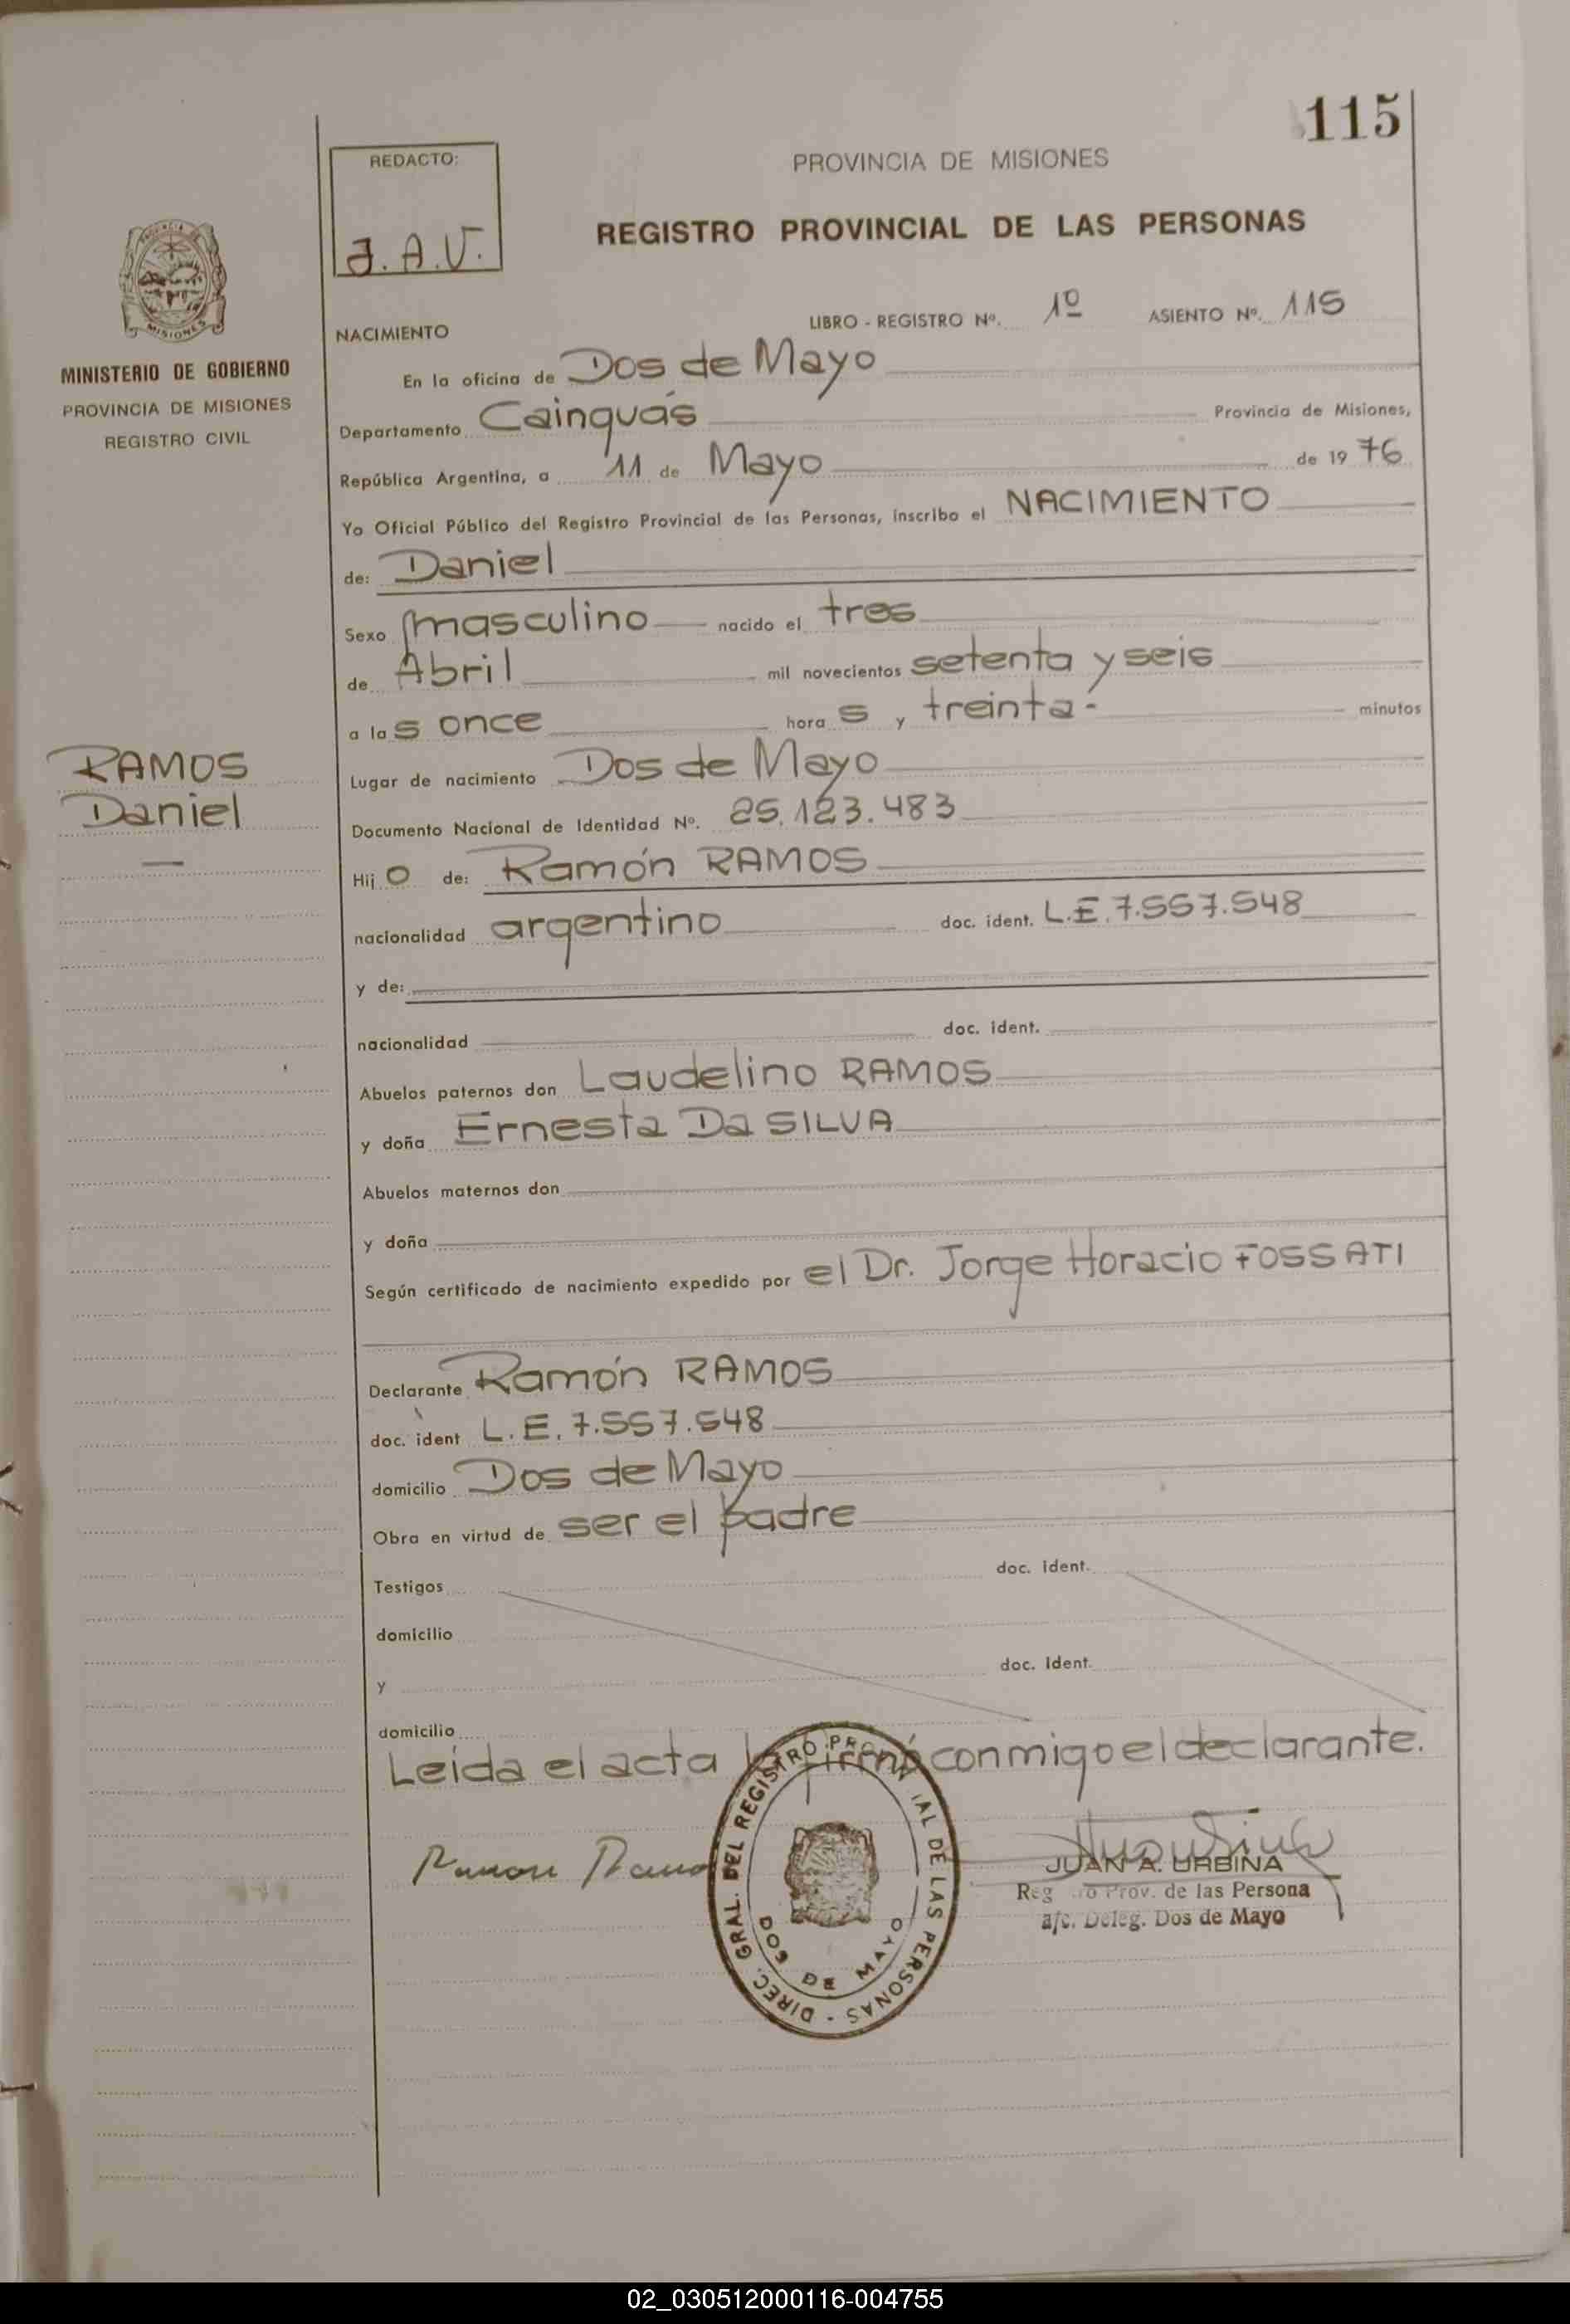 115
REDACTO:
J.A.V.
PROVINCIA DE MISIONES
REGISTRO PROVINCIAL DE LAS PERSONAS
MISIONES
MINISTERIO DE GOBIERNO
PROVINCIA DE MISIONES
REGISTRO CIVIL
NACIMIENTO LIBRO - REGISTRO Nº. 1º ASIENTO Nº. 115
En la oficina de Dos de Mayo
Departamento Cainguás Provincia de Misiones,
República Argentina, a 11 de Mayo de 1976
Yo Oficial Público del Registro Provincial de las Personas, inscribo el NACIMIENTO
de: Daniel
Sexo masculino nacido el tres
de Abril mil novecientos setenta y seis
a las once horas y treinta.- minutos
RAMOS
Daniel
Lugar de nacimiento Dos de Mayo
Documento Nacional de Identidad Nº. 25.123.483
Hijo de: Ramón RAMOS
nacionalidad argentino doc. ident. L.E. 7.557.548
y de:
nacionalidad doc. ident.
Abuelos paternos don Laudelino RAMOS
y doña Ernesta Da SILVA
Abuelos maternos don
y doña
Según certificado de nacimiento expedido por el Dr. Jorge Horacio FOSSATI
Declarante Ramón RAMOS
doc. ident L.E. 7.557.548
domicilio Dos de Mayo
Obra en virtud de ser el padre
Testigos doc. ident.
domicilio
y doc. Ident.
domicilio
Leída el acta la firmó conmigo el declarante.
Ramon Ramo
DIREC. GRAL. DEL REGISTRO PROVINCIAL DE LAS PERSONAS -
DOS DE MAYO
JUAN A. URBINA
Reg ro Prov. de las Persona
a/c. Deleg. Dos de Mayo
02_030512000116-004755